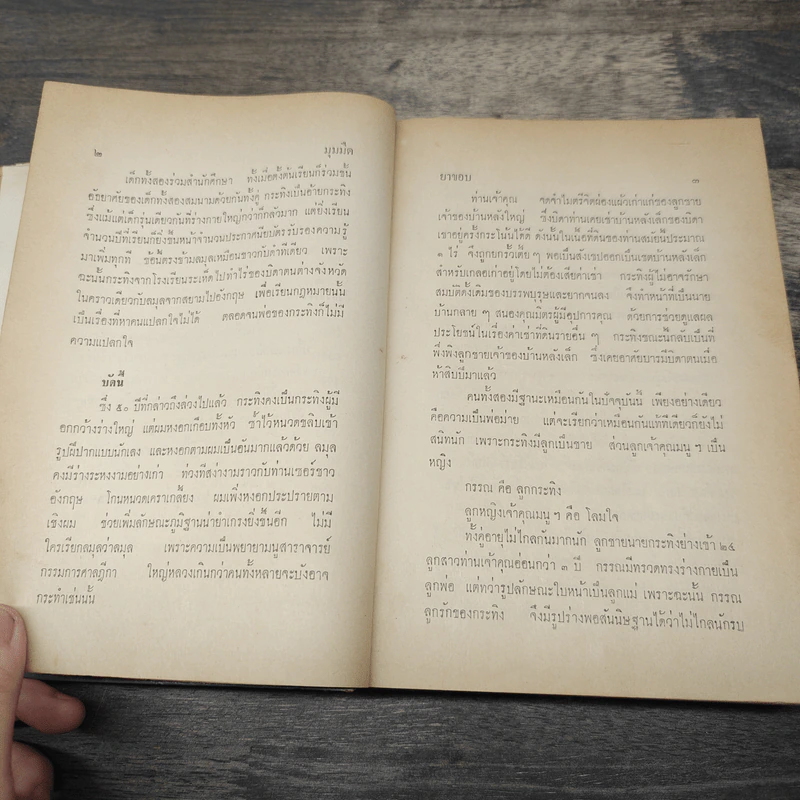 ๒ มุมมืด
เด็กทั้งสองร่วมสำนักศึกษา ทั้งเมื่อตั้งต้นเรียนก็ร่วมชั้น
อัธยาศัยของเด็กทั้งสองสมนามด้วยกันทั้งคู่ กระทิงเป็นอ้ายกระทิง
ซึ่งแม้แต่เด็กรุ่นเดียวกันที่ร่างกายใหญ่กว่าก็กลัวมาก แต่ยิ่งเรียน
จำนวนปีที่เรียนก็ยิ่งขึ้นหน้าจำนวนประกาศนียบัตรรับรองความรู้
มาเพิ่มทุกที ข้อนี้ตรงข้ามสมุลเหมือนขาวกับดำทีเดียว เพราะ
ฉะนั้นกระทิงจากโรงเรียนระเห็ดไปทำไร่ของบิดาตนต่างจังหวัด
ในคราวเดียวกับสมุลจากสยามไปอังกฤษ เพื่อเรียนกฎหมายนั้น
เป็นเรื่องที่หาคนแปลกใจไม่ได้ ตลอดจนพ่อของกระทิงก็ไม่มี
ความแปลกใจ
บัดนี้
ซึ่ง ๕๐ ปีที่กล่าวถึงล่วงไปแล้ว กระทิงคงเป็นกระทิงผู้มี
อกกว้างร่างใหญ่ แต่ผมหงอกเกือบทั้งหัว ซ้ำไว้หนวดขลิบเข้า
รูปฝีปากแบบนักเลง และหงอกตามผมเป็นอันมากแล้วด้วย สมุล
คงมีร่างระหงงามอย่างเก่า ท่วงทีสง่างามราวกับท่านเซอร์ชาว
อังกฤษ โกนหนวดเคราเกลี้ยง ผมเพิ่งหงอกประปรายตาม
เชิงผม ช่วยเพิ่มลักษณะภูมิฐานน่ายำเกรงยิ่งขึ้นอีก ไม่มี
ใครเรียกสมุลว่าสมุล เพราะความเป็นพยายามนูสาราจารย์
กรรมการศาลฎีกา ใหญ่หลวงเกินกว่าคนทั้งหลายจะบังอาจ
กระทำเช่นนั้น
ยาขอบ ๓
ท่านเจ้าคุณ จดจำไมตรีจิตผ่องแผ้วเก่าแก่ของลูกชาย
เจ้าของบ้านหลังใหญ่ ซึ่งบิดาท่านเคยเช่าบ้านหลังเล็กของบิดา
เขาอยู่ครั้งกระโน้นได้ดี ดังนั้นในเนื้อที่ดินของท่านสมัยนี้ประมาณ
๓ ไร่ จึงถูกยกรั้วเตี้ย ๆ พอเป็นสังเขปออกเป็นเขตบ้านหลังเล็ก
สำหรับเกลอเก่าอยู่โดยไม่ต้องเสียค่าเช่า กระทิงผู้ไม่อาจรักษา
สมบัติดั้งเดิมของบรรพบุรุษและยากจนลง จึงทำหน้าที่เป็นนาย
บ้านกลาย ๆ สนองคุณมิตรผู้มีอุปการคุณ ด้วยการช่วยดูแลผล
ประโยชน์ในเรื่องค่าเช่าที่ดินรายอื่น ๆ กระทิงขณะนี้กลับเป็นที่
พึ่งพิงลูกชายเจ้าของบ้านหลังเล็ก ซึ่งเคยอาศัยบารมีบิดาตนเมื่อ
ห้าสิบปีมาแล้ว
คนทั้งสองมีฐานะเหมือนกันในปัจจุบันนี้ เพียงอย่างเดียว
คือความเป็นพ่อม่าย แต่จะเรียกว่าเหมือนกันแท้ทีเดียวก็ยังไม่
สนิทนัก เพราะกระทิงมีลูกเป็นชาย ส่วนลูกเจ้าคุณมนู ฯ เป็น
หญิง
กรรณ คือ ลูกกระทิง
ลูกหญิงเจ้าคุณมนู ฯ คือ โลมใจ
ทั้งคู่อายุไม่ไกลกันมากนัก ลูกชายนายกระทิงย่างเข้า ๒๕
ลูกสาวท่านเจ้าคุณอ่อนกว่า ๓ ปี กรรณมีทรวดทรงร่างกายเป็น
ลูกพ่อ แต่ทว่ารูปลักษณะใบหน้าเป็นลูกแม่ เพราะฉะนั้น กรรณ
ลูกรักของกระทิง จึงมีรูปร่างพอสันนิษฐานได้ว่าไม่ไกลนักรบ